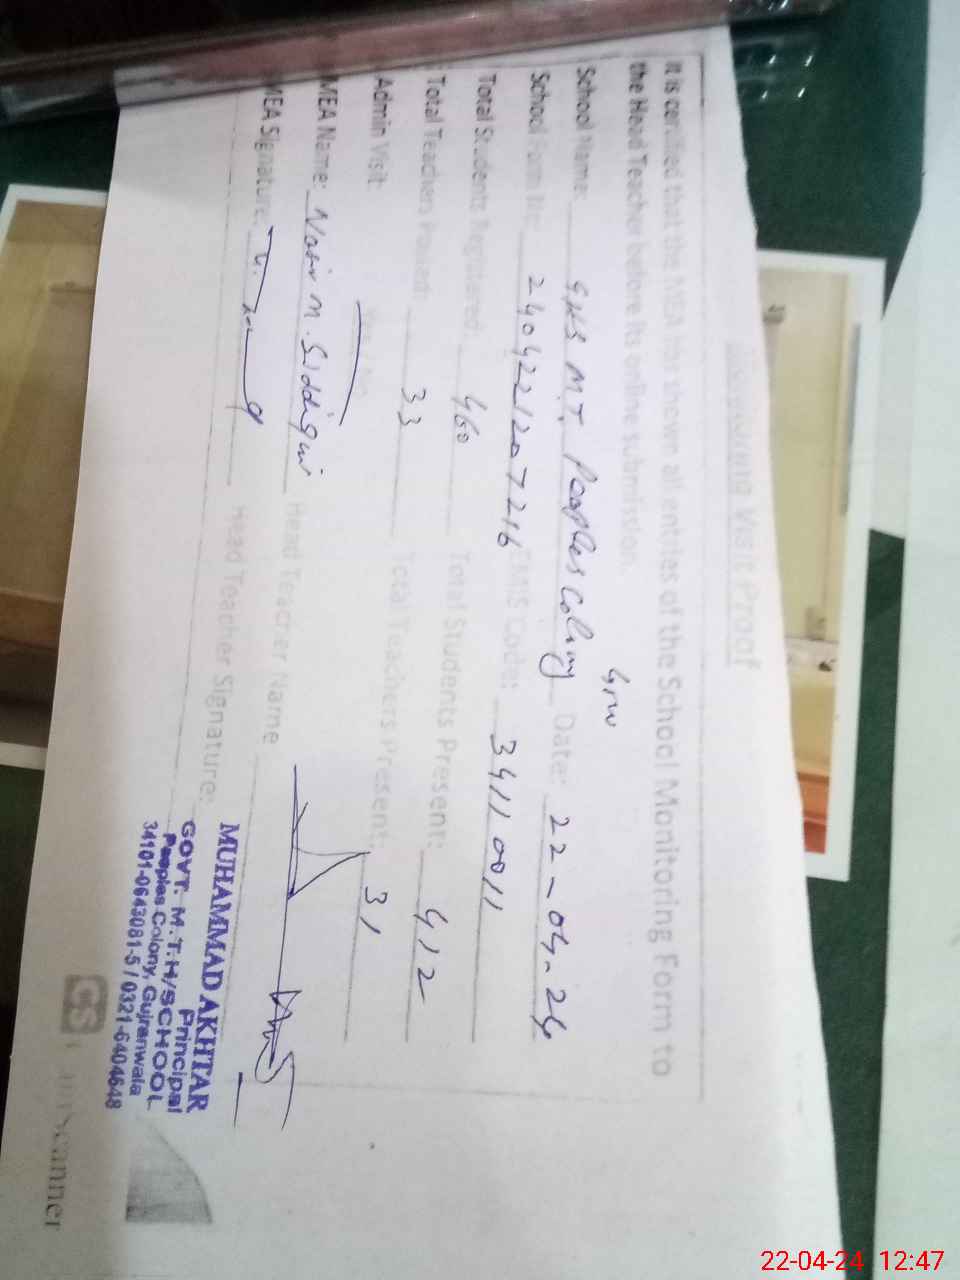 Monitoring Visit Proof
It is certified that the MEA has shown all entries of the School Monitoring Form to
the Head Teacher before its online submission.
Grw
School Name: GHS MT. Peoples Colony Date: 22-04-24
School Form No: 2404221207216 EMIS Code: 34110011
Total Students Registered: 460 Total Students Present: 412
Total Teachers Posted: 33 Total Teachers Present: 31
Admin Visit: Yes / No
MEA Name: Nasir M. Siddiqui Head Teacher Name
MEA Signature: Head Teacher Signature:
MUHAMMAD AKHTAR
Principal
GOVT. M.T.H/SCHOOL
Peoples Colony, Gujranwala
34101-0643081-5 / 0321-6404648
CS
22-04-24 12:47